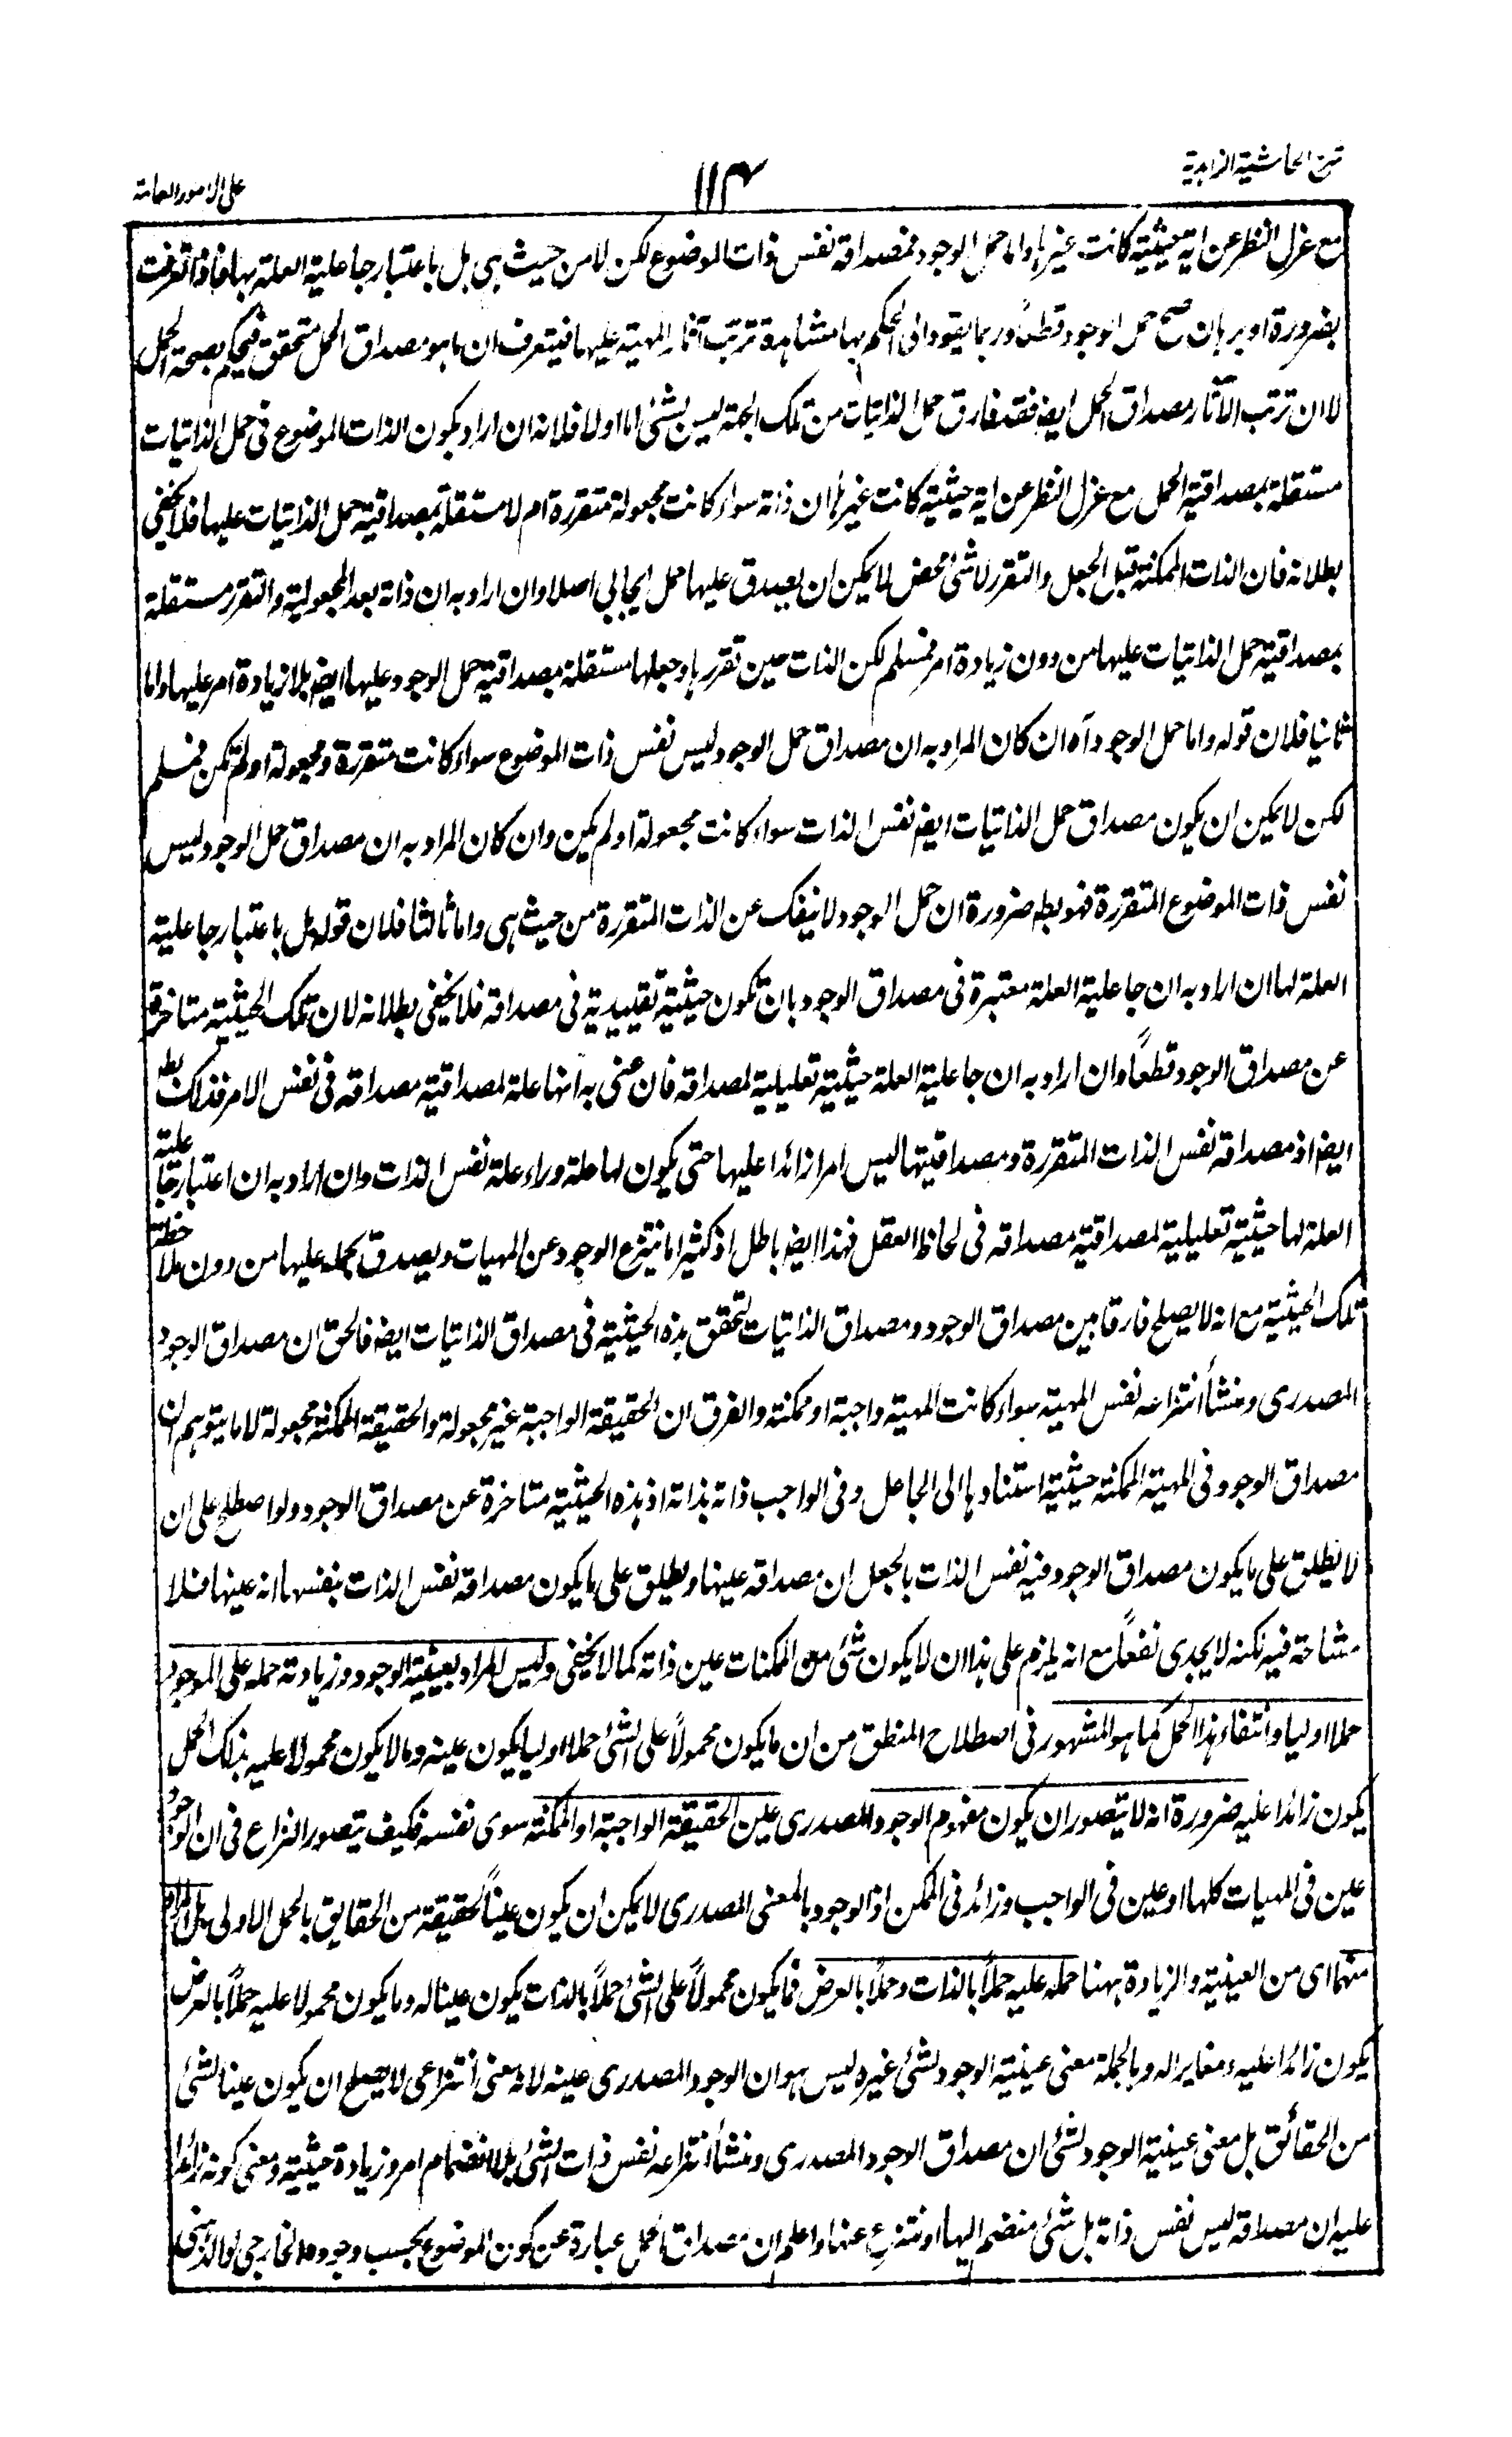 شرح الحاشية الزاهدية
١١٣
على الامور العامة
مع عزل النظر عن اية حيثية كانت غيرها واما حمل الوجود فمصداقه نفس ذات الموضوع لكن لا من حيث هى بل باعتبار جاعلية العلة لها فاذا تعرفت
بضرورة او برهان صح حمل الوجود قطعا وربما يقود الى الحكم بها مشاهدة ترتب آثار المهية عليها فيتعرف ان ما هو مصداق الحمل متحقق فيحكم بصحة الحمل
لا ان ترتب الآثار مصداق الحمل ايضا فقد فارق حمل الذاتيات من تلك الجهة ليس بشئ اما اولا فلانه ان اراد بكون الذات الموضوع فى حمل الذاتيات
مستقلة بمصداقية الحمل مع عزل النظر عن اية حيثية كانت غيرها ان ذاته سواء كانت مجعولة متقررة ام لا مستقلة بمصداقية حمل الذاتيات عليها فلا يخفى
بطلانه فان الذات الممكنة قبل الجعل والتقرر لا شئ محض لا يمكن ان يصدق عليها حمل ايجابي اصلا وان اراد به ان ذاته بعد المجعولية والتقرر مستقلة
بمصداقية حمل الذاتيات عليها من دون زيادة امر فمسلم لكن الذات حين تقررها وجعلها مستقلة بمصداقية حمل الوجود عليها ايضا بلا زيادة امر عليها واما
ثانيا فلان قوله واما حمل الوجود آه ان كان المراد به ان مصداق حمل الوجود ليس نفس ذات الموضوع سواء كانت متقررة ومجعولة او لم تكن فمسلم
لكن لا يمكن ان يكون مصداق حمل الذاتيات ايضا نفس الذات سواء كانت مجعولة او لم يكن وان كان المراد به ان مصداق حمل الوجود ليس
نفس ذات الموضوع المتقررة فهو بط ضرورة ان حمل الوجود لا ينفك عن الذات المتقررة من حيث هى واما ثالثا فلان قوله بل باعتبار جاعلية
العلة لها ان اراد به ان جاعلية العلة معتبرة فى مصداق الوجود بان تكون حيثية تقييدية فى مصداقه فلا يخفى بطلانه لان تلك الحيثية متاخرة
عن مصداق الوجود قطعاً وان اراد به ان جاعلية العلة حيثية تعليلية لمصداقه فان عنى به انها علة لمصداقية مصداقه فى نفس الامر فذلك بط
ايضا اذ مصداقه نفس الذات المتقررة ومصداقيتها ليس امرا زائدا عليها حتى يكون لها علة وراء علة نفس الذات وان اراد به ان اعتبار جاعلية
العلة لها حيثية تعليلية لمصداقية مصداقه فى لحاظ العقل فهذا ايضا باطل اذ كثيرا ما ينتزع الوجود عن المهيات ويصدق بحمله عليها من دون ملاحظة
تلك الحيثية مع انه لا يصلح فارقا بين مصداق الوجود ومصداق الذاتيات لتحقق هذه الحيثية فى مصداق الذاتيات ايضا فالحق ان مصداق الوجود
المصدرى ومنشأ انتزاعه نفس المهية سواء كانت المهية واجبة او ممكنة والفرق ان الحقيقة الواجبة غير مجعولة والحقيقة الممكنة مجعولة لا ما يتوهم ان
مصداق الوجود فى المهية الممكنة حيثية استنادها الى الجاعل وفى الواجب ذاته بذاته اذ هذه الحيثية متاخرة عن مصداق الوجود ولو اصطلح على ان
لا يطلق على ما يكون مصداق الوجود فيه نفس الذات بالجعل ان مصداقه عينها ويطلق على ما يكون مصداقه نفس الذات بنفسها انه عينها فلا
مشاحة فيه لكنه لا يجدى نفعاً مع انه يلزم على هذا ان لا يكون شئ من الممكنات عين ذاته كما لا يخفى وليس المراد بعينية الوجود وزيادته حمله على الموجود
حملا اوليا وانتفاء هذا الحمل كما هو المشهور فى اصطلاح المنطق من ان ما يكون محمولاً على الشئ حملا اوليا يكون عينه وما لا يكون محمولا عليه بذلك الحمل
يكون زائدا عليه ضرورة انه لا يتصور ان يكون مفهوم الوجود المصدرى عين الحقيقة الواجبة او الممكنة سوى نفسه فكيف يتصور النزاع فى ان الوجود
عين فى المهيات كلها او عين فى الواجب وزائد فى الممكن اذ الوجود بالمعنى المصدرى لا يمكن ان يكون عيناً لحقيقة من الحقايق بالحمل الاولى بل المراد
منهما اى من العينية والزيادة ههنا حمله عليه حملاً بالذات وحملاً بالعرض فما يكون محمولاً على الشئ حملاً بالذات يكون عينا له وما يكون محمولا عليه حملاً بالعرض
يكون زائدا عليه ومغايرا له وبالجملة معنى عينية الوجود لشئ غيره ليس هو ان الوجود المصدرى عينه لانه معنى انتزاعى لا يصلح ان يكون عينا لشئ
من الحقائق بل معنى عينية الوجود لشئ ان مصداق الوجود المصدرى ومنشأ انتزاعه نفس ذات الشئ بلا انضمام امر وزيادة حيثية ومعنى كونه زائدا
عليه ان مصداقه ليس نفس ذاته بل شئ منضم اليها او منتزع عنها واعلم ان مصداق الحمل عبارة عن كون الموضوع بحسب وجوده الخارجى او الذهنى